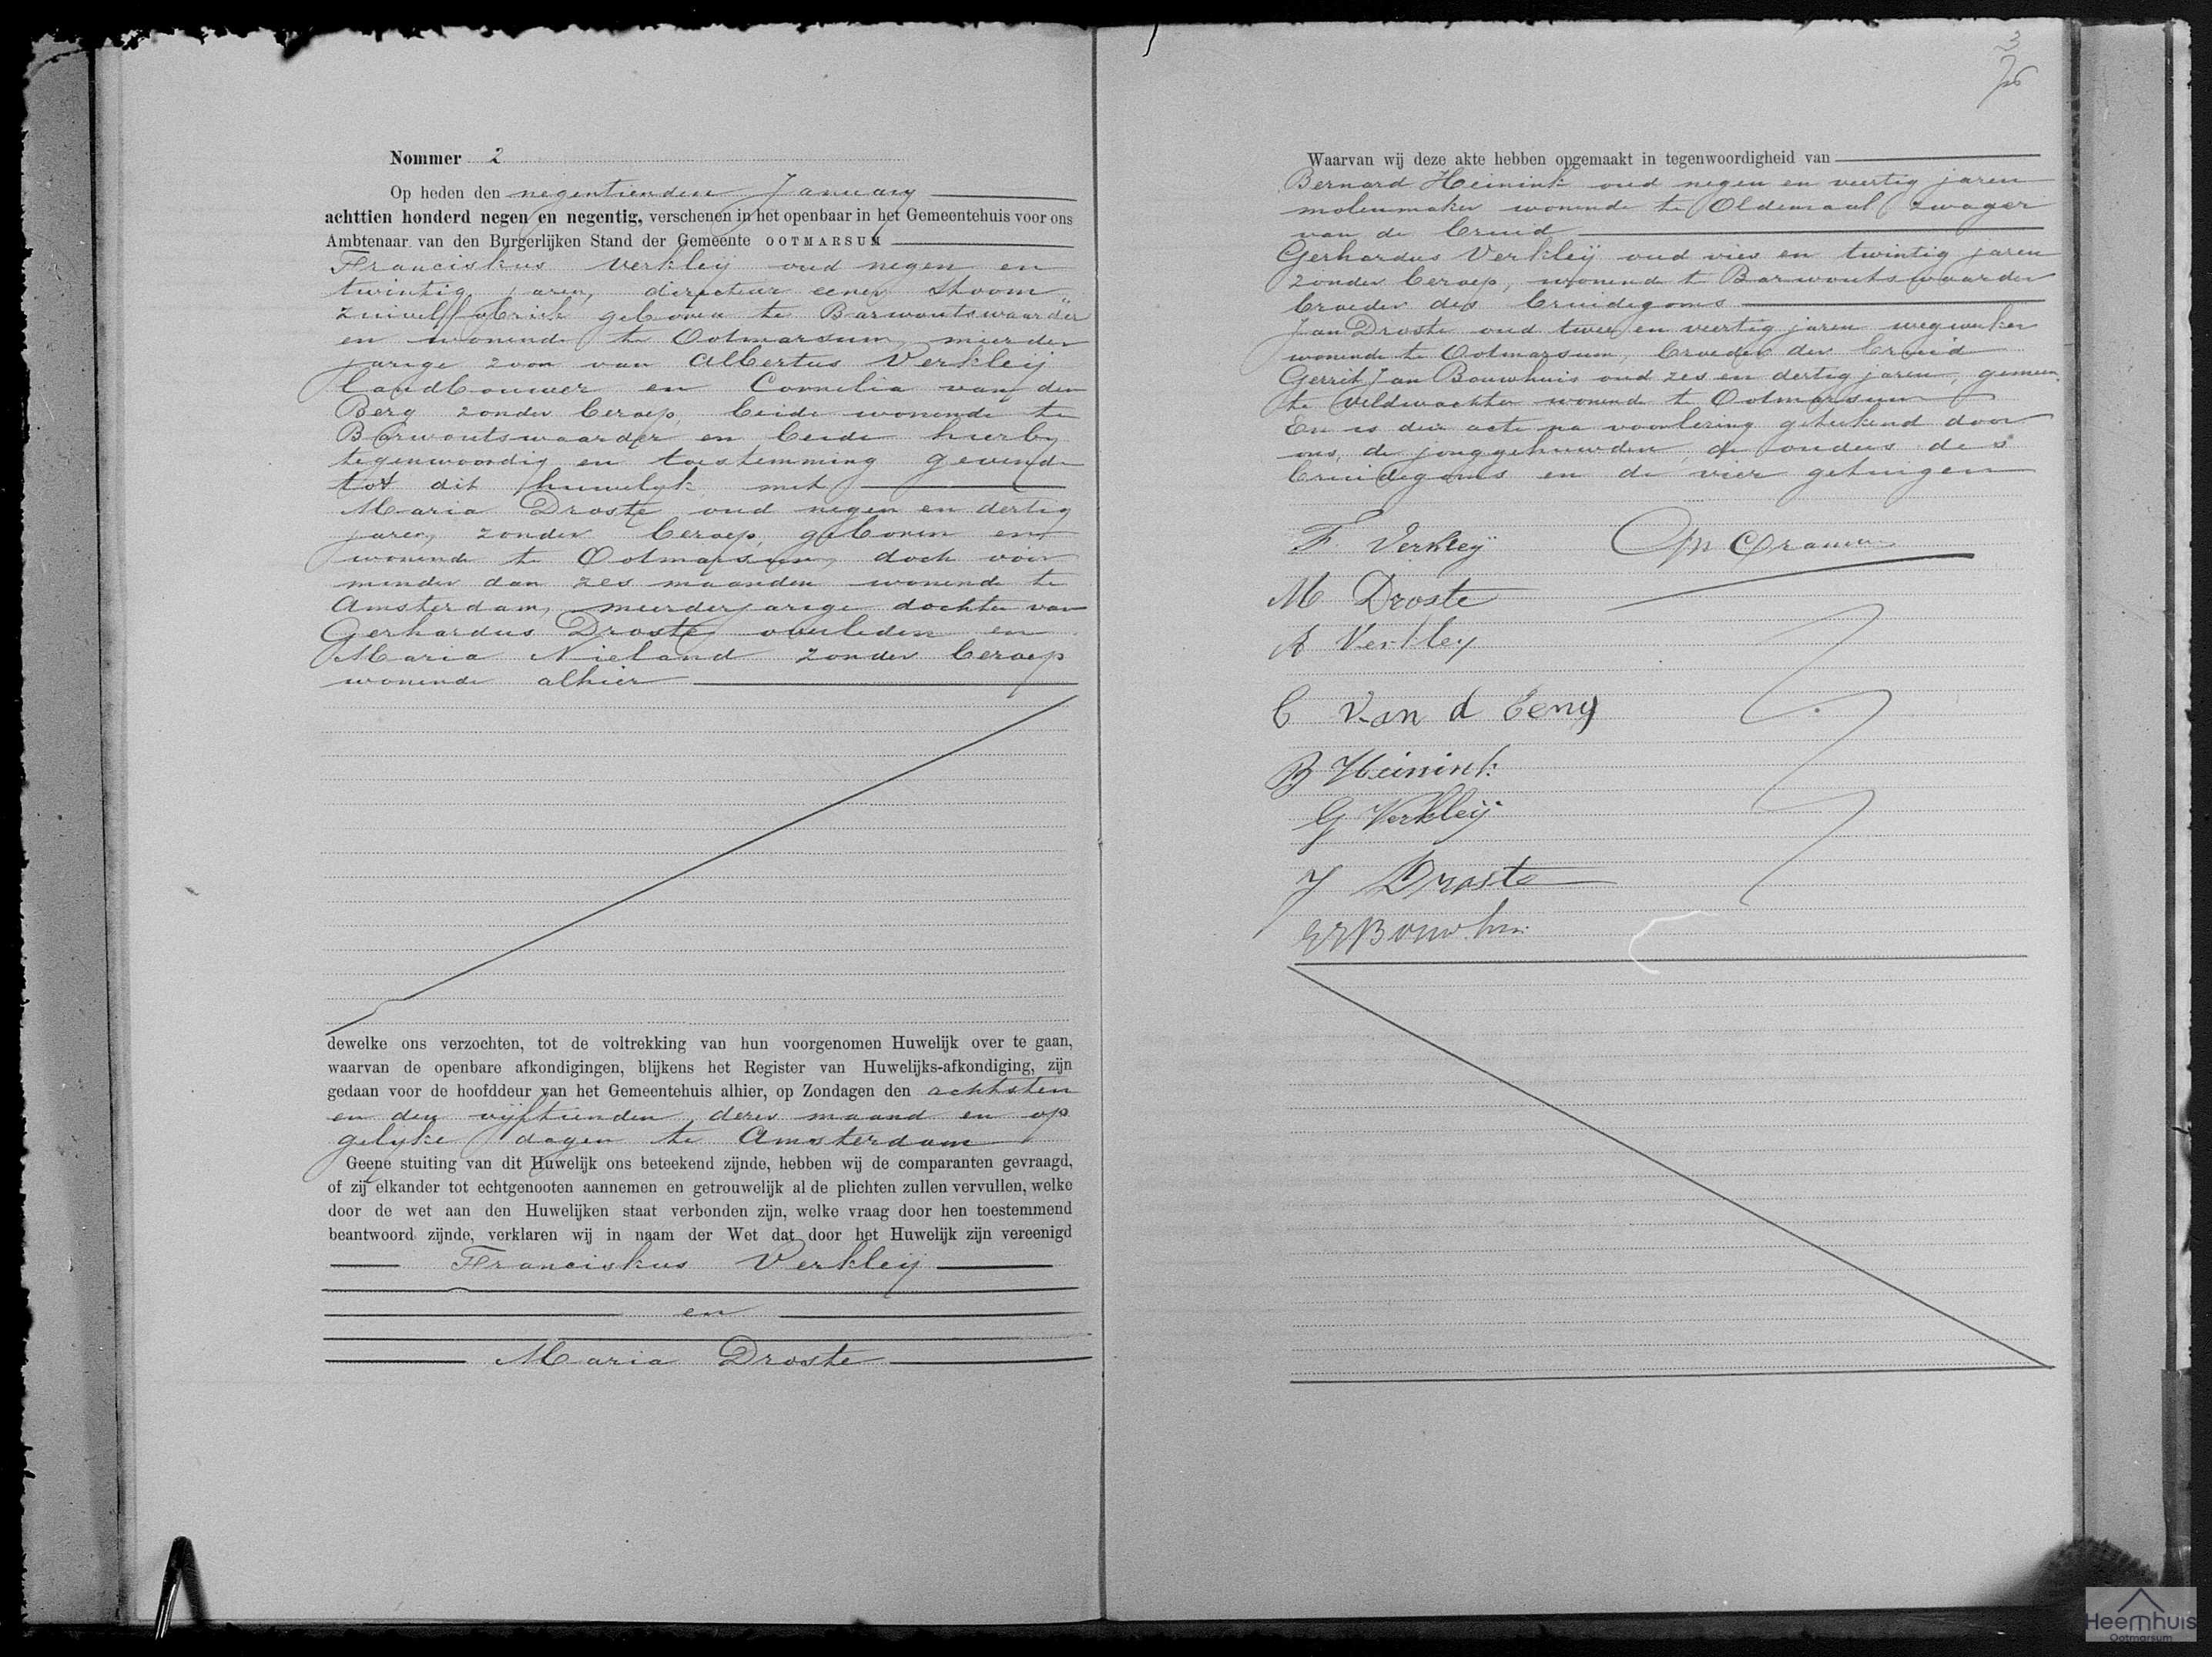 Nommer 2
Op heden den negentienden January
achttien honderd negen en negentig, verschenen in het openbaar in het Gemeentehuis voor ons
Ambtenaar van den Burgerlijken Stand der Gemeente OOTMARSUM
Franciskus Verkleij oud negen en
twintig jaren, directeur eener stoom
zuivelfabriek geboren te Barwoutswaarder
en wonende te Ootmarsum, meerder
jarige zoon van Albertus Verkleij
landbouwer en Cornelia van den
Berg zonder beroep, beide wonende te
Barwoutswaarder en beide hierby
tegenwoordig en toestemming gevende
tot dit huwelyk met
Maria Droste, oud negen en dertig
jaren, zonder beroep, geboren en
wonende te Ootmarsum, doch voor
minder dan zes maanden wonende te
Amsterdam, meerderjarige dochter van
Gerhardus Droste overleden en
Maria Nieland zonder beroep
wonende alhier
dewelke ons verzochten, tot de voltrekking van hun voorgenomen Huwelijk over te gaan,
waarvan de openbare afkondigingen, blijkens het Register van Huwelijks-afkondiging, zijn
gedaan voor de hoofddeur van het Gemeentehuis alhier, op Zondagen den achtsten
en den vijftienden dezer maand en op
gelyke dagen te Amsterdam
Geene stuiting van dit Huwelijk ons beteekend zijnde, hebben wij de comparanten gevraagd,
of zij elkander tot echtgenooten aannemen en getrouwelijk al de plichten zullen vervullen, welke
door de wet aan den Huwelijken staat verbonden zijn, welke vraag door hen toestemmend
beantwoord zijnde, verklaren wij in naam der Wet dat door het Huwelijk zijn vereenigd
Franciskus Verkleij
en
Maria Droste
3
Waarvan wij deze akte hebben opgemaakt in tegenwoordigheid van
Bernard Heinink oud negen en veertig jaren
molenmaker wonende te Oldenzaal zwager
van de bruid
Gerhardus Verkleij oud vier en twintig jaren
zonder beroep, wonende te Barwoutswaarder
broeder des bruidegoms
Jan Droste oud twee en veertig jaren wegwerker
wonende te Ootmarsum, broeder der bruid
Gerrit Jan Bouwhuis oud zes en dertig jaren, gemeen
te veldwachter wonende te Ootmarsum
En is deze acte na voorlezing geteekend door
ons, de jonggehuwden, de ouders des
bruidegoms en de vier getuigen
F. Verkleÿ
M Droste
A Verkley
C Van d Berg
B Heinink
G Verkleij
J Droste
GJ Bouwhuis
Heemhuis
Ootmarsum